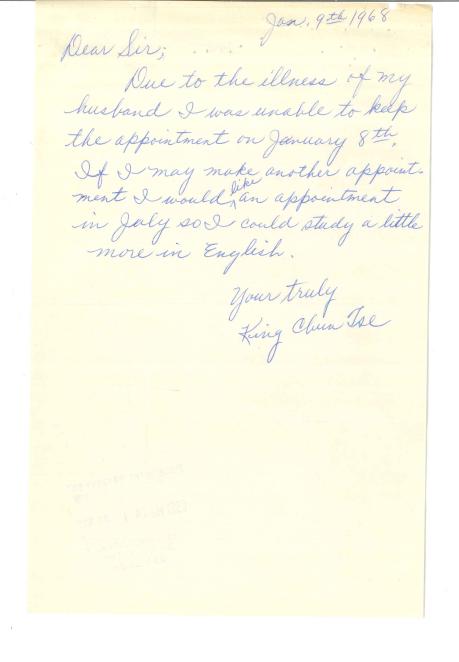 Jan. 9th, 1968
Dear Sir;
Due to the illness of my
husband I was unable to keep
the appointment on January 8th.
If I may make another appoint-
ment I would like an appointment
in July so I could study a little
more in English.
Your truly
King Chun Tse